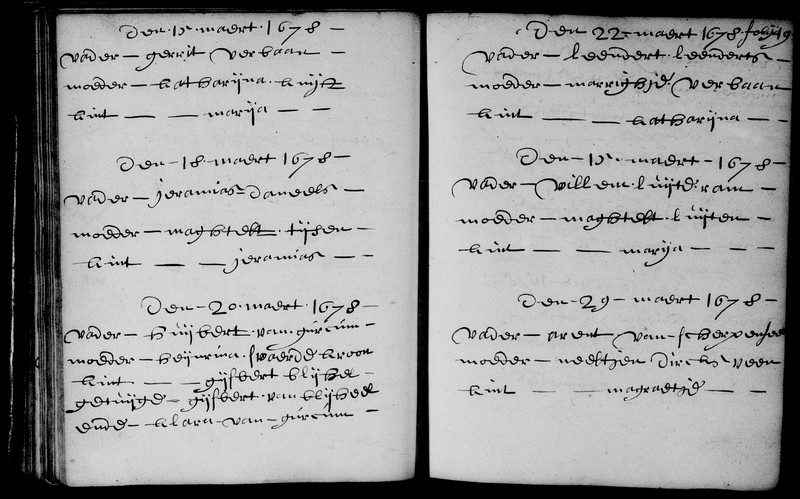 Den 15 maert 1678
vader — gerrit verbaan
moeder — katharijna kuijf
kint — — marija — —
Den 18 maert 1678 —
vader — jeramias daneels —
moeder — maghtelt tijsen —
kint — — jeramias — —
Den 20 maert 1678 —
vader — huijbert van gurcum —
moeder — heijnrina kroon
kint — — gijsbert blijhel —
getuijge — gijsbert van blijheel
ende — klara van gurcum —
Den 22 maert 1678
vader — leendert leenderts —
moeder — marrighje verbaan
kint — — katharijna — —
Den 15 maert — 1678 —
vader — willem ram —
moeder — maghtelt luijten —
kint — — marija — — —
Den 29 maert 1678 —
vader — arent van
moeder — neeltjen dircks veen
kint — — magraetje — —